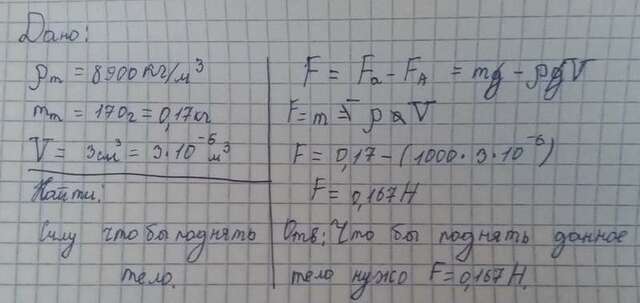 Дано:
ρт = 8900 кг/м³
mт = 170г = 0,17кг
V = 3см³ = 3·10⁻⁶м³
Найти:
Силу что бы поднять
тело.
F = Fa - FA = mg - ρgV
F = m - ρ V
F = 0,17 - (1000·3·10⁻⁶)
F = 0,167 Н
Отв: Что бы поднять данное
тело нужо F = 0,167 Н.